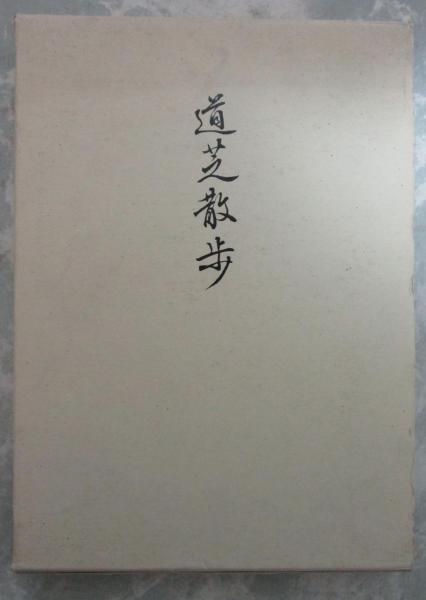 道芝散歩